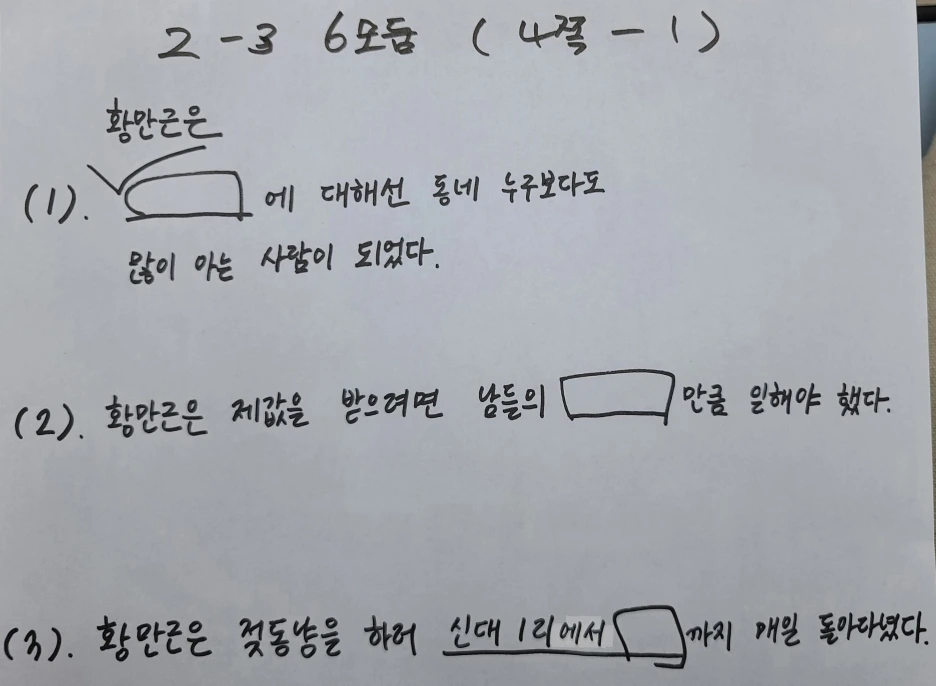 2-3 6모둠 (4쪽-1)
황만근은
(1). 에 대해선 동네 누구보다도
많이 아는 사람이 되었다.
(2). 황만근은 제값을 받으려면 남들의 만큼 일해야 했다.
(3). 황만근은 젖동냥을 하러 신대 1리에서 까지 매일 돌아다녔다.